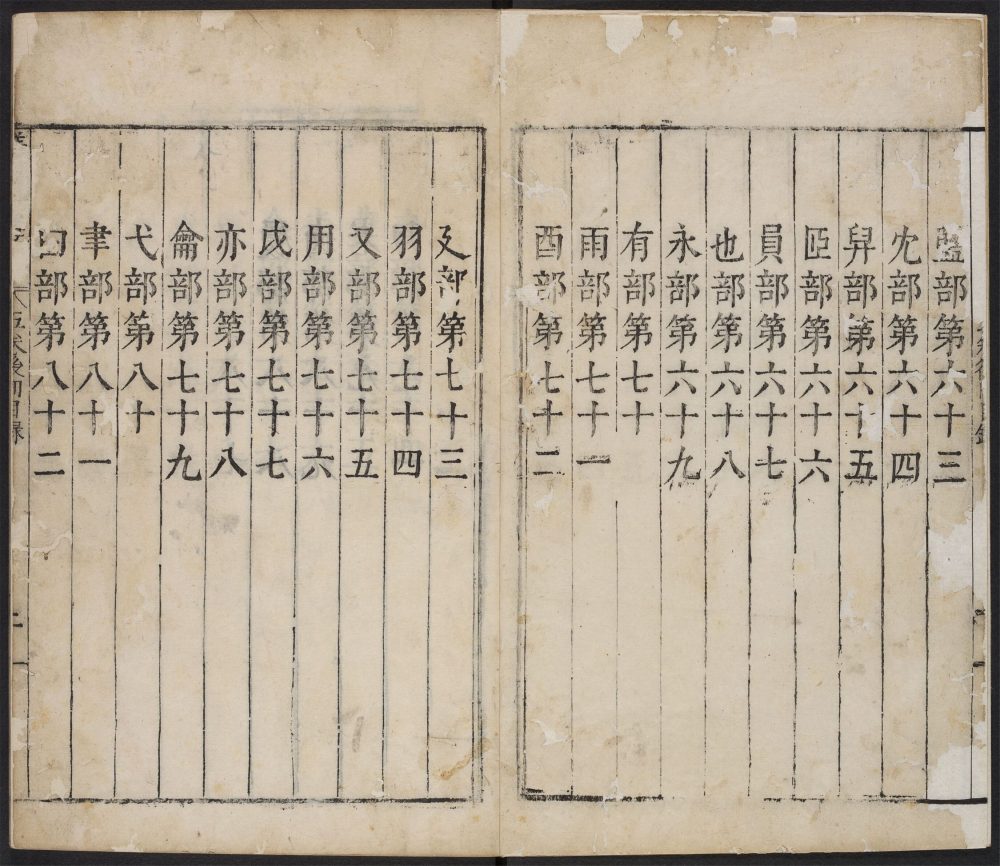 部第六十三
冘部第六十四
舁部第六十五
𦣞部第六十六
員部第六十七
也部第六十八
永部第六十九
有部第七十
雨部第七十一
酉部第七十二
廴部第七十三
羽部第七十四
又部第七十五
用部第七十六
戉部第七十七
亦部第七十八
龠部第七十九
弋部第八十
聿部第八十一
部第八十二